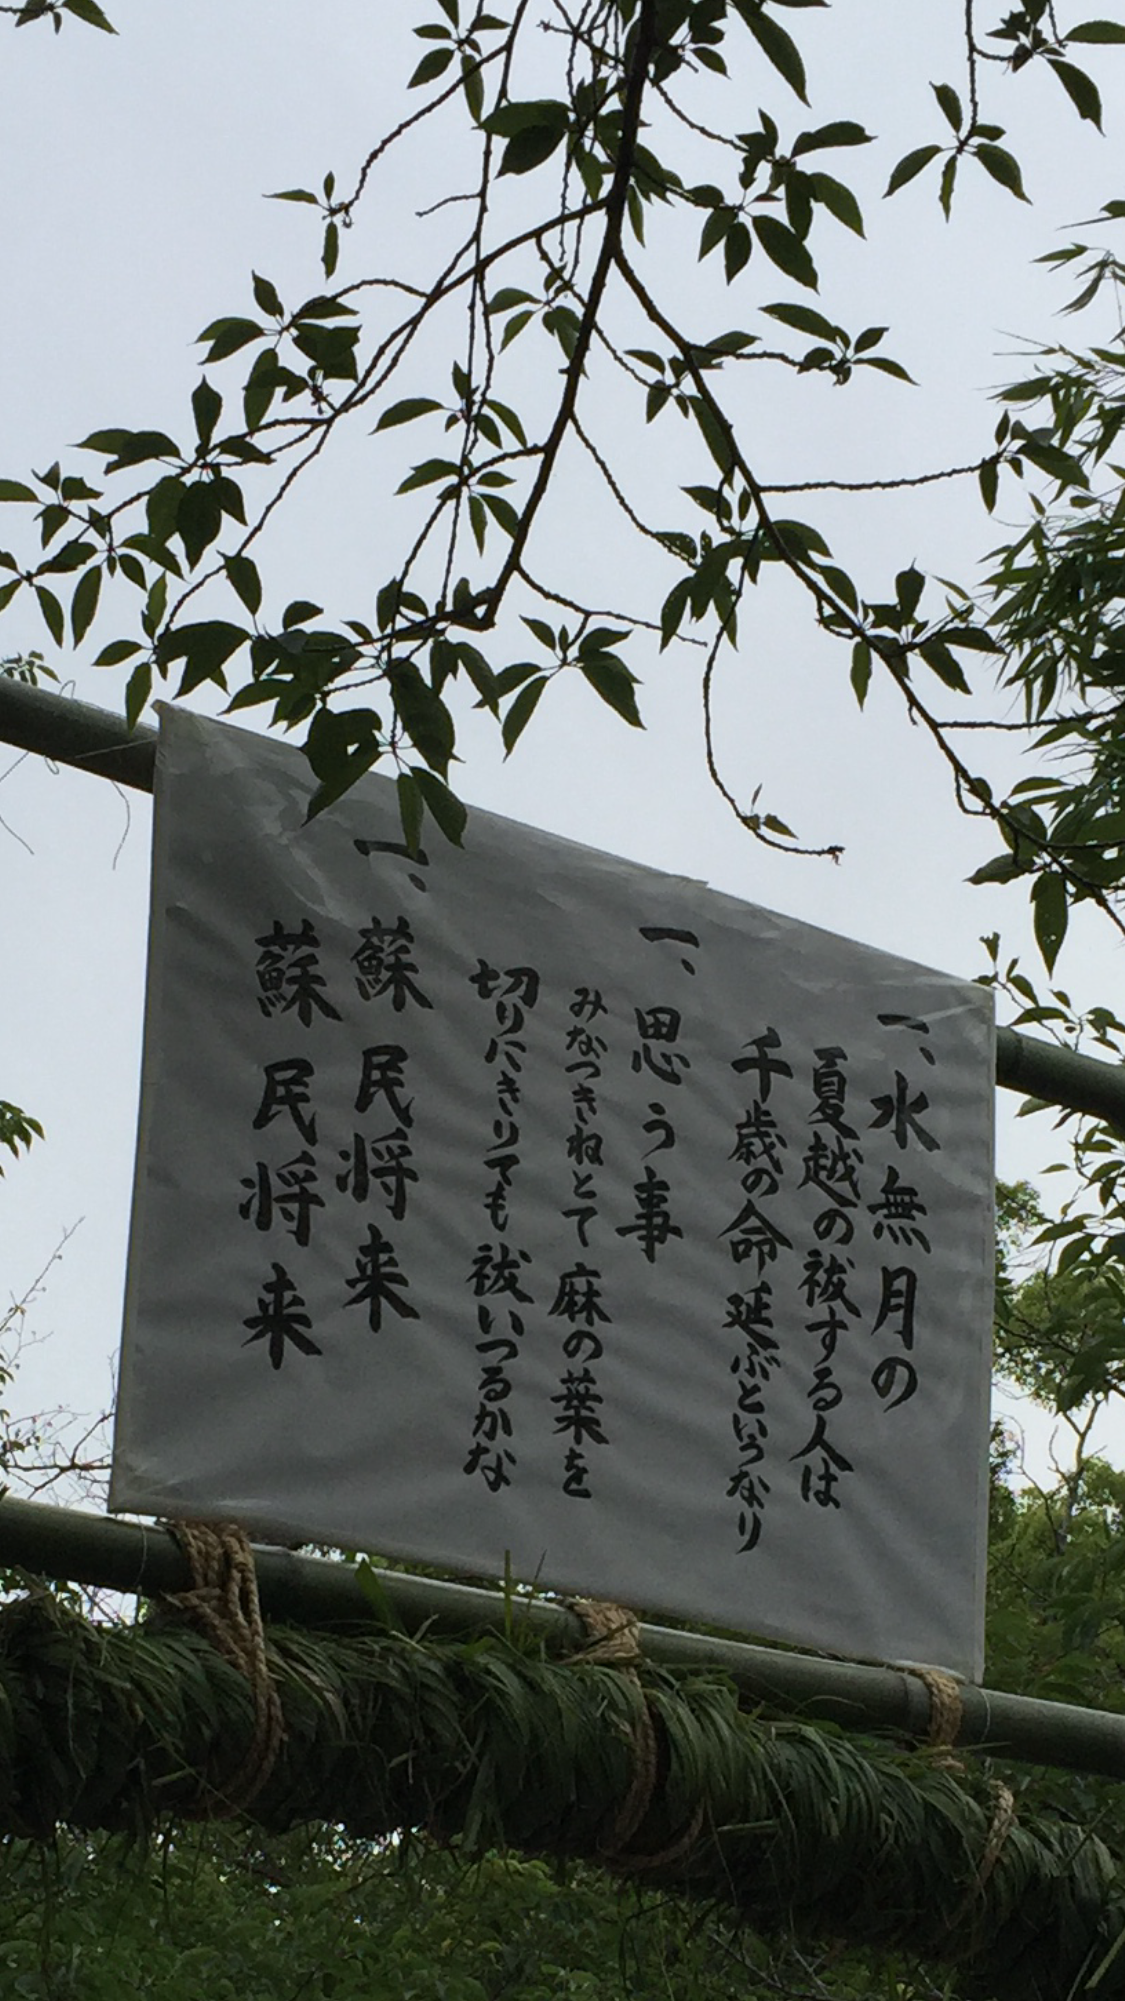 一、水無月の
夏越の祓する人は
千歳の命延ぶというなり
一、思う事
みなつきねとて麻の葉を
切りにきりても祓いつるかな
一、蘇民将来
蘇民将来